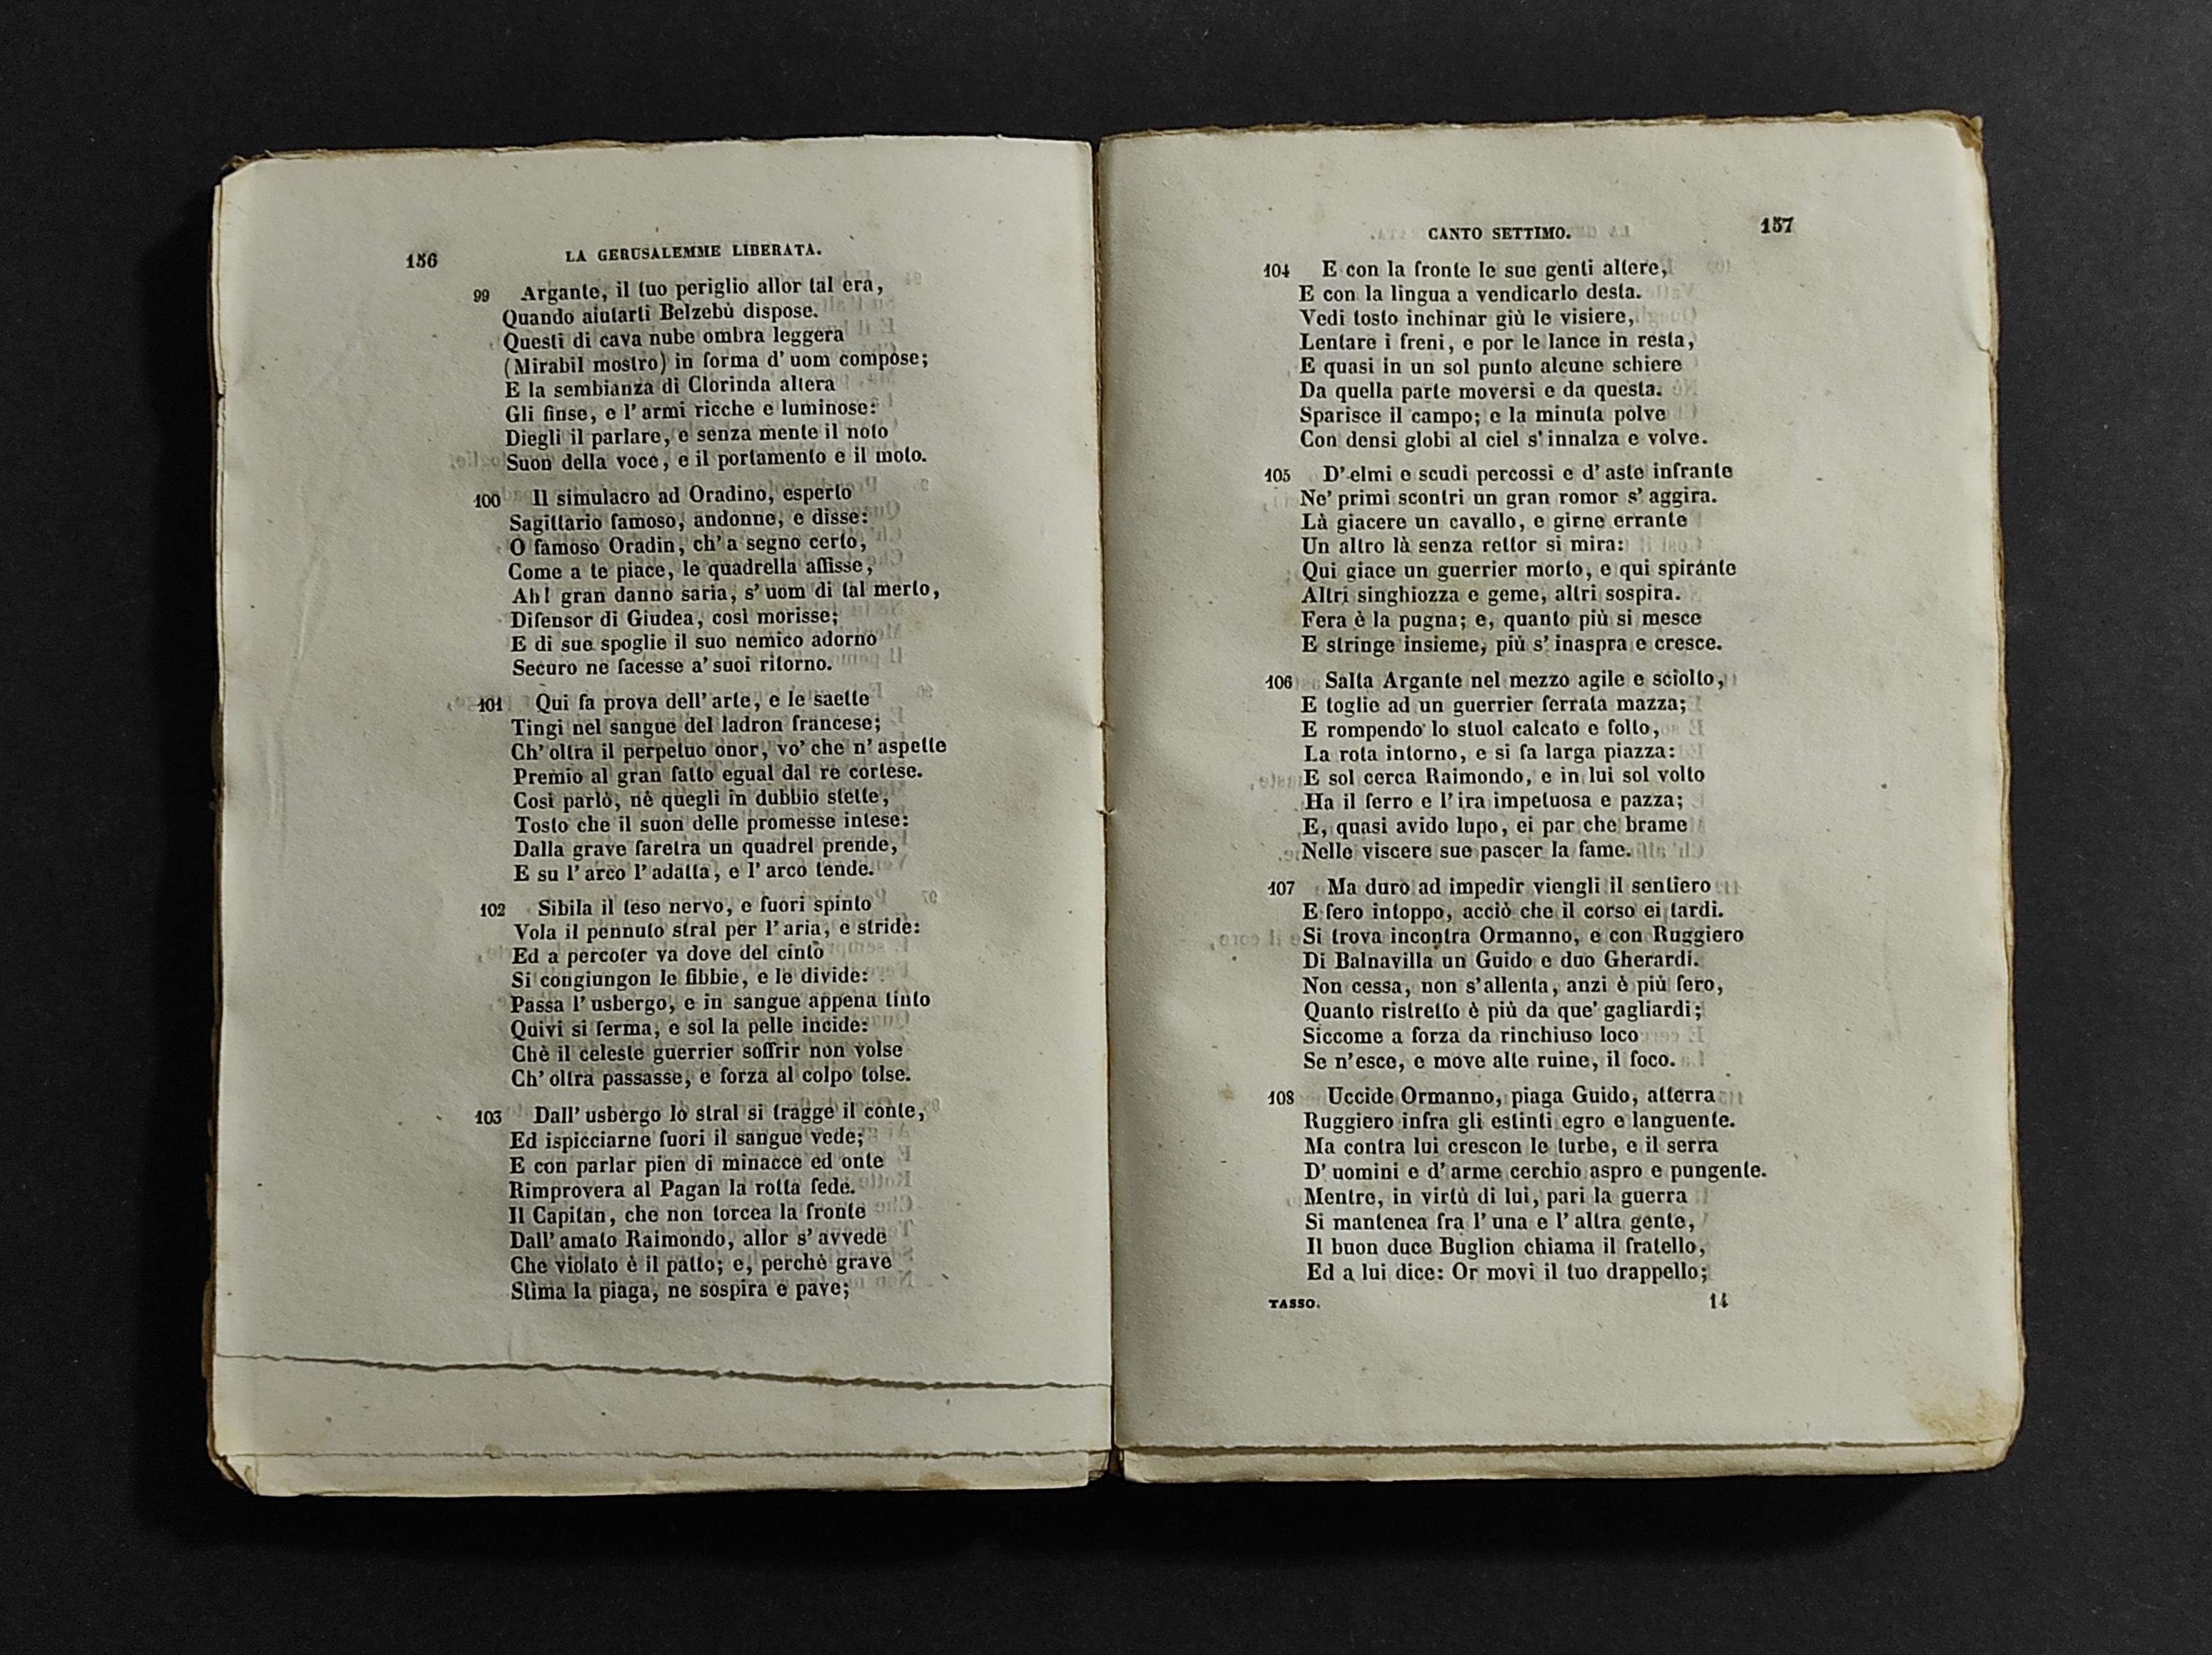 156
LA GERUSALEMME LIBERATA.
99 Argante, il tuo periglio allor tal era,
Quando aiutarti Belzebù dispose.
Questi di cava nube ombra leggera
(Mirabil mostro) in forma d' uom compose;
E la sembianza di Clorinda altera
Gli finse, e l' armi ricche e luminose:
Diegli il parlare, e senza mente il noto
Suon della voce, e il portamento e il moto.
100 Il simulacro ad Oradino, esperto
Sagittario famoso, andonne, e disse:
O famoso Oradin, ch' a segno certo,
Come a te piace, le quadrella affisse,
Ah! gran danno saria, s' uom di tal merto,
Difensor di Giudea, così morisse;
E di sue spoglie il suo nemico adorno
Securo ne facesse a' suoi ritorno.
101 Qui fa prova dell' arte, e le saette
Tingi nel sangue del ladron francese;
Ch' oltra il perpetuo onor, vo' che n' aspette
Premio al gran fatto egual dal re cortese.
Così parlò, nè quegli in dubbio stette,
Tosto che il suon delle promesse intese:
Dalla grave faretra un quadrel prende,
E su l' arco l' adatta, e l' arco tende.
102 Sibila il teso nervo, e fuori spinto
Vola il pennuto stral per l' aria, e stride:
Ed a percoter va dove del cinto
Si congiungon le fibbie, e le divide:
Passa l' usbergo, e in sangue appena tinto
Quivi si ferma, e sol la pelle incide:
Chè il celeste guerrier soffrir non volse
Ch' oltra passasse, e forza al colpo tolse.
103 Dall' usbergo lo stral si tragge il conte,
Ed ispicciarne fuori il sangue vede;
E con parlar pien di minacce ed onte
Rimprovera al Pagan la rotta fede.
Il Capitan, che non torcea la fronte
Dall' amato Raimondo, allor s' avvede
Che violato è il patto; e, perchè grave
Stima la piaga, ne sospira e pave;
CANTO SETTIMO.
157
104 E con la fronte le sue genti altere,
E con la lingua a vendicarlo desta.
Vedi tosto inchinar giù le visiere,
Lentare i freni, e por le lance in resta,
E quasi in un sol punto alcune schiere
Da quella parte moversi e da questa.
Sparisce il campo; e la minuta polve
Con densi globi al ciel s' innalza e volve.
105 D' elmi e scudi percossi e d' aste infrante
Ne' primi scontri un gran romor s' aggira.
Là giacere un cavallo, e girne errante
Un altro là senza rettor si mira:
Qui giace un guerrier morto, e qui spirante
Altri singhiozza e geme, altri sospira.
Fera è la pugna; e, quanto più si mesce
E stringe insieme, più s' inaspra e cresce.
106 Salta Argante nel mezzo agile e sciolto,
E toglie ad un guerrier ferrata mazza;
E rompendo lo stuol calcato e folto,
La rota intorno, e si fa larga piazza:
E sol cerca Raimondo, e in lui sol volto
Ha il ferro e l' ira impetuosa e pazza;
E, quasi avido lupo, ei par che brame
Nelle viscere sue pascer la fame.
107 Ma duro ad impedir viengli il sentiero
E fero intoppo, acciò che il corso ei tardi.
Si trova incontra Ormanno, e con Ruggiero
Di Balnavilla un Guido e duo Gherardi.
Non cessa, non s'allenta, anzi è più fero,
Quanto ristretto è più da que' gagliardi;
Siccome a forza da rinchiuso loco
Se n'esce, e move alte ruine, il foco.
108 Uccide Ormanno, piaga Guido, atterra
Ruggiero infra gli estinti egro e languente.
Ma contra lui crescon le turbe, e il serra
D' uomini e d' arme cerchio aspro e pungente.
Mentre, in virtù di lui, pari la guerra
Si mantenea fra l' una e l' altra gente,
Il buon duce Buglion chiama il fratello,
Ed a lui dice: Or movi il tuo drappello;
TASSO. 14